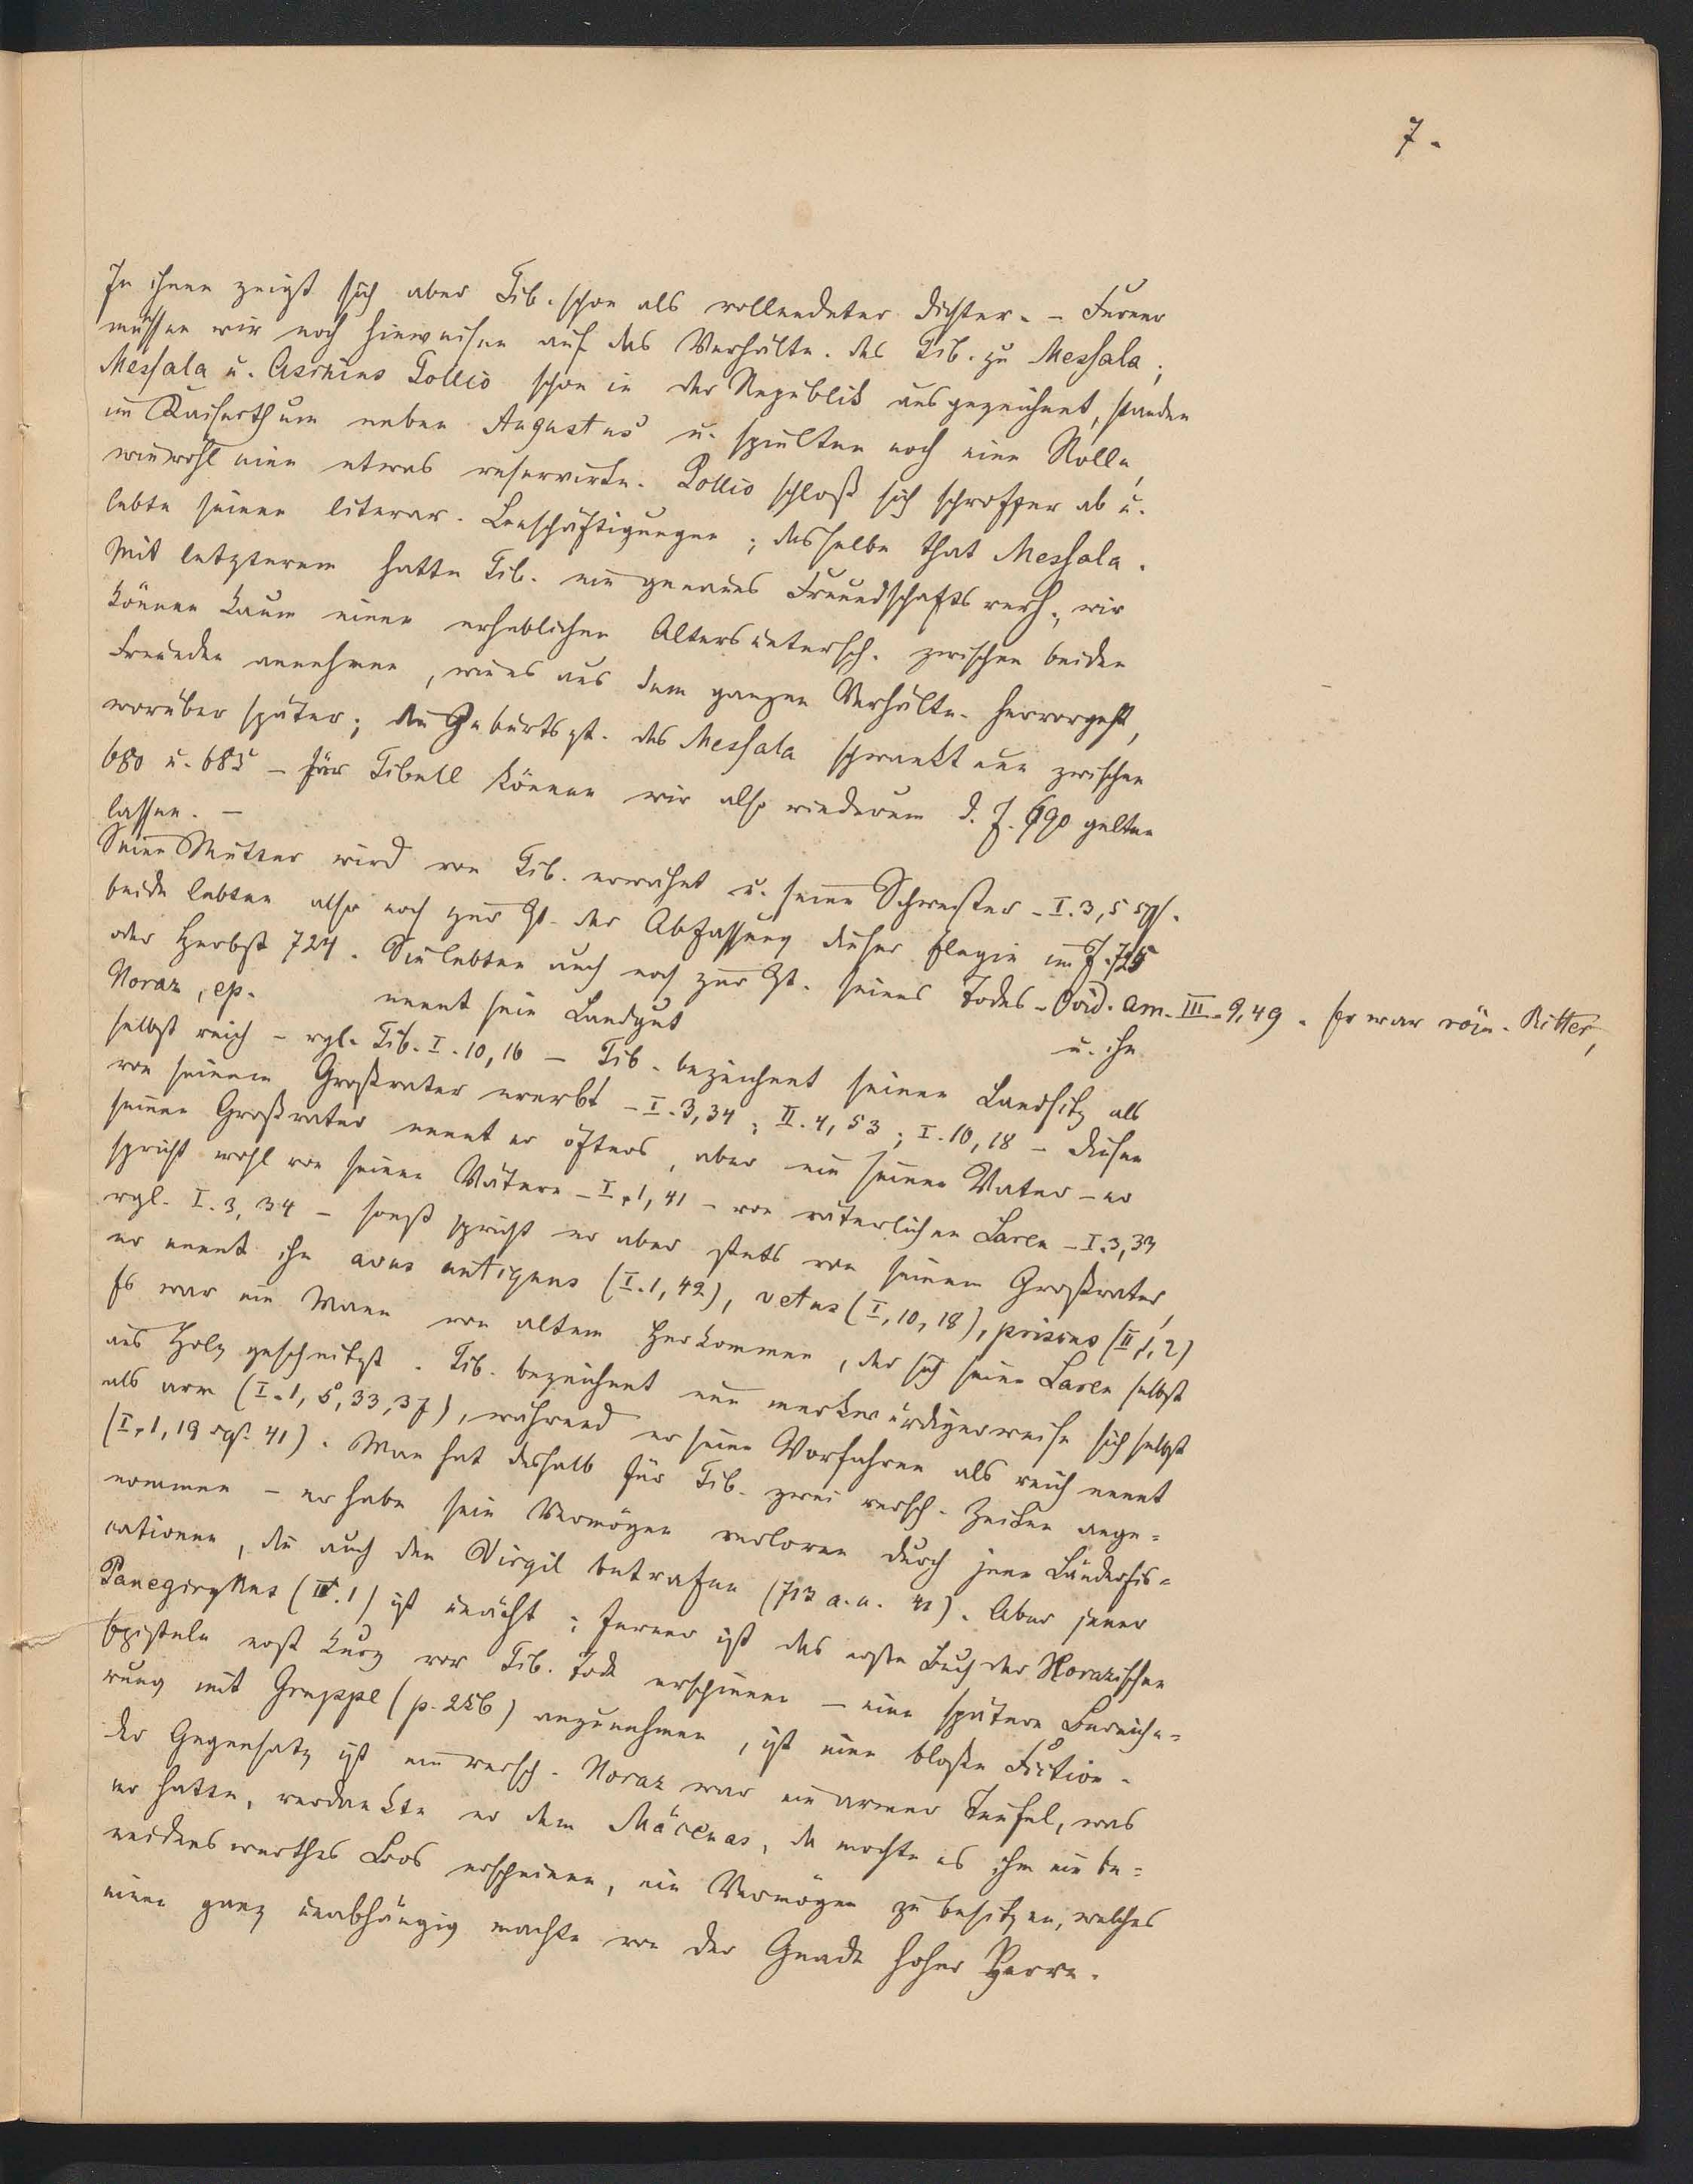 7.
In ihnen zeigt sich aber Tib. schon als vollendeter Dichter. – Ferner
müssen wir noch hinweisen auf das Verhältn. des Tib. zu Messala;
Messala u. Asinius Pollio schon in der Republik ausgezeichnet, standen
im Kaiserthum neben Augustus u. spielten noch eine Rolle,
wiewohl eine etwas reservirte. Pollio schloß sich schroffer ab u.
lebte seinen literar. Beschäftigungen; dasselbe that Messala.
Mit letzterem hatte Tib. ein genaues Freundschaftsverh., wir
können kaum einen erheblichen Altersuntersch. zwischen beiden
Freunden annehmen, wie es aus dem ganzen Verhältn. hervorgeht,
worüber später; die Geburtszt. des Messala schwankt nun zwischen
680 u. 685 – für Tibull können wir also wiederum d. J. 690 gelten
lassen. –
Seine Mutter wird von Tib. erwähnt u. seine Schwester – I. 3, 5 sqs.
beide lebten also noch zur Zt. der Abfassung dieser Elegie im J. 725
oder Herbst 724. Sie lebten auch noch zur Zt. seines Todes – Ovid. Am. III. 9, 49. Er war röm. Ritter,
Horaz, ep. nennt sein Landgut u. ihn
selbst reich – vgl. Tib. I. 10, 16 – Tib. bezeichnet seinen Landsitz als
von seinem Großvater ererbt – I. 3, 34; II. 4, 53; I. 10, 18 – diesen
seinen Großvater nennt er öfters, aber nie seinen Vater – er
spricht wohl von seinen Vätern – I. 1, 41 – von väterlichen Laren – I. 3, 33
vgl. I. 3, 34 – sonst spricht er aber stets von seinem Großvater,
er nennt ihn avus antiquus (I. 1, 42), vetus (I, 10, 18), priscus (II, 1, 2)
Es war ein Mann von altem Herkommen, der sich seine Laren selbst
aus Holz geschnitzt. Tib. bezeichnet nun merkwürdigerweise sich selbst
als arm (I. 1, 5, 33, 37), während er seine Vorfahren als reich nennt
(I. 1, 19 sqs. 41). Man hat deshalb für Tib. zwei versch. Zeiten ange=
nommen – er habe sein Vermögen verloren durch jene Länderfis=
cationen, die auch den Virgil betrafen (713 a. u. 41). Aber jener
Panegirykus (IV. 1) ist unächt; ferner ist das erste Buch der Horazischen
Episteln erst kurz vor Tib. Tode erschienen – eine spätere Bereiche=
rung mit Gruppe (p. 256) anzunehmen, ist eine bloße Fiction.
Der Gegensatz ist ein versch. Horaz war ein armer Teufel, was
er hatte, verdankte er dem Mäcenas, da mochte es ihm ein be=
neidenswerthes Loos erscheinen, ein Vermögen zu besitzen, welches
einen ganz unabhängig machte von der Gnade hoher Herrn.